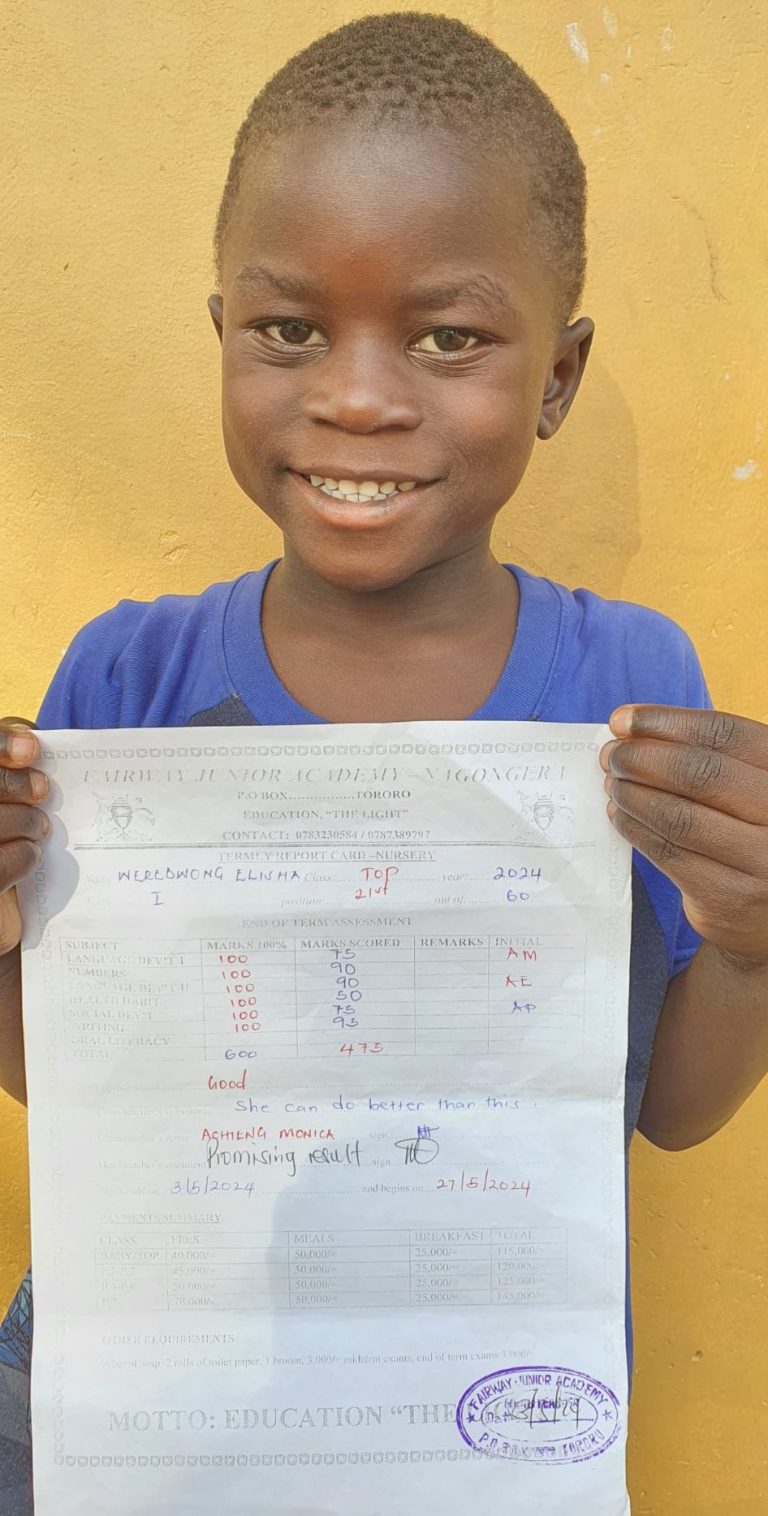 FAIRWAY JUNIOR ACADEMY –NAGONGERA
P.O BOX................TORORO
EDUCATION, "THE LIGHT"
CONTACT: 0783230584 / 0787389797
TERMLY REPORT CARD –NURSERY
Name WEREDWONG ELISHA Class: TOP year: 2024
I position: 21st out of: 60
END OF TERM ASSESSMENT
SUBJECT MARKS 100% MARKS SCORED REMARKS INITIAL
LANGUAGE DEV'T I 100 75 AM
NUMBERS 100 90
LANGUAGE DEV'T II 100 90 AE
HEALTH HABIT 100 50
SOCIAL DEV'T 100 75 AP
WRITING 100 95
ORAL LITERACY
TOTAL 600 475
Good
She can do better than this.
ACHIENG MONICA sign.
Promising result sign.
3/5/2024 and begins on... 27/5/2024
PAYMENTS SUMMARY
CLASS FEES MEALS BREAKFAST TOTAL
BABY-TOP 40,000/= 50,000/= 25,000/= 115,000/=
P.1-P.2 45,000/= 50,000/= 25,000/= 120,000/=
50,000/= 50,000/= 25,000/= 125,000/=
P.7 70,000/- 50,000/= 25,000/= 145,000/=
OTHER REQUIREMENTS
of soap, 2 rolls of toilet paper, 1 broom, 3,000/= midterm exams, end of term exams
MOTTO: EDUCATION "THE
FAIRWAY JUNIOR ACADEMY
TORORO